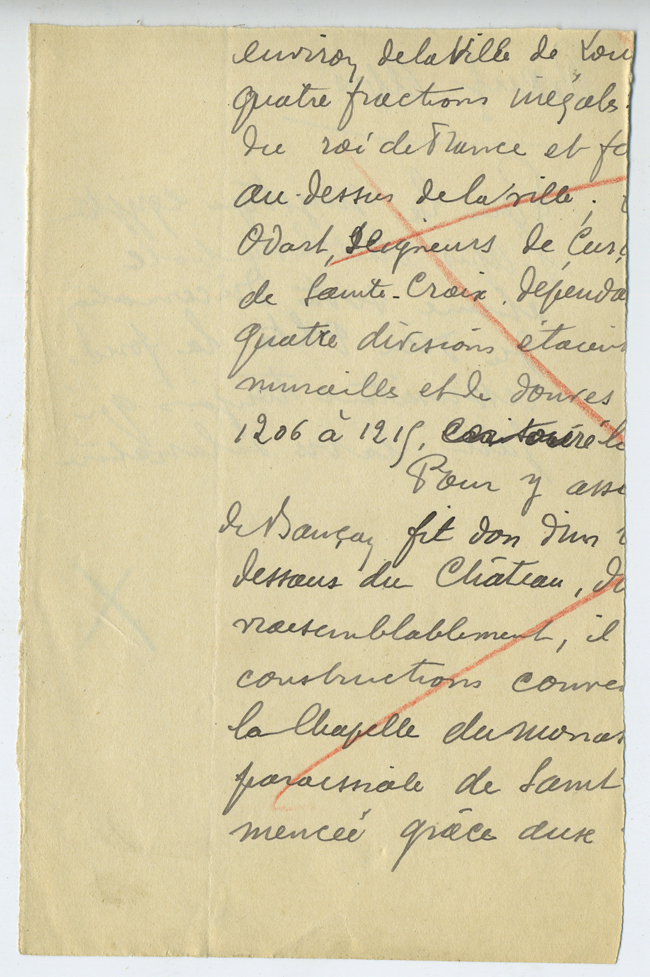 environ de la Ville de Lou
quatre fractions inégales.
du roi de France et fo
au-dessus de la ville,
Odart, Seigneurs de Curç
de Sainte-Croix. dépenda
quatre divisions étaient
murailles et de douves
1206 à 1215,
Pour y asse
de Bauçay fit don d'un
dessous du Château, de
vraisemblablement, il
constructions conve
la Chapelle du Monas
paroissiale de Saint
mencée grâce aux